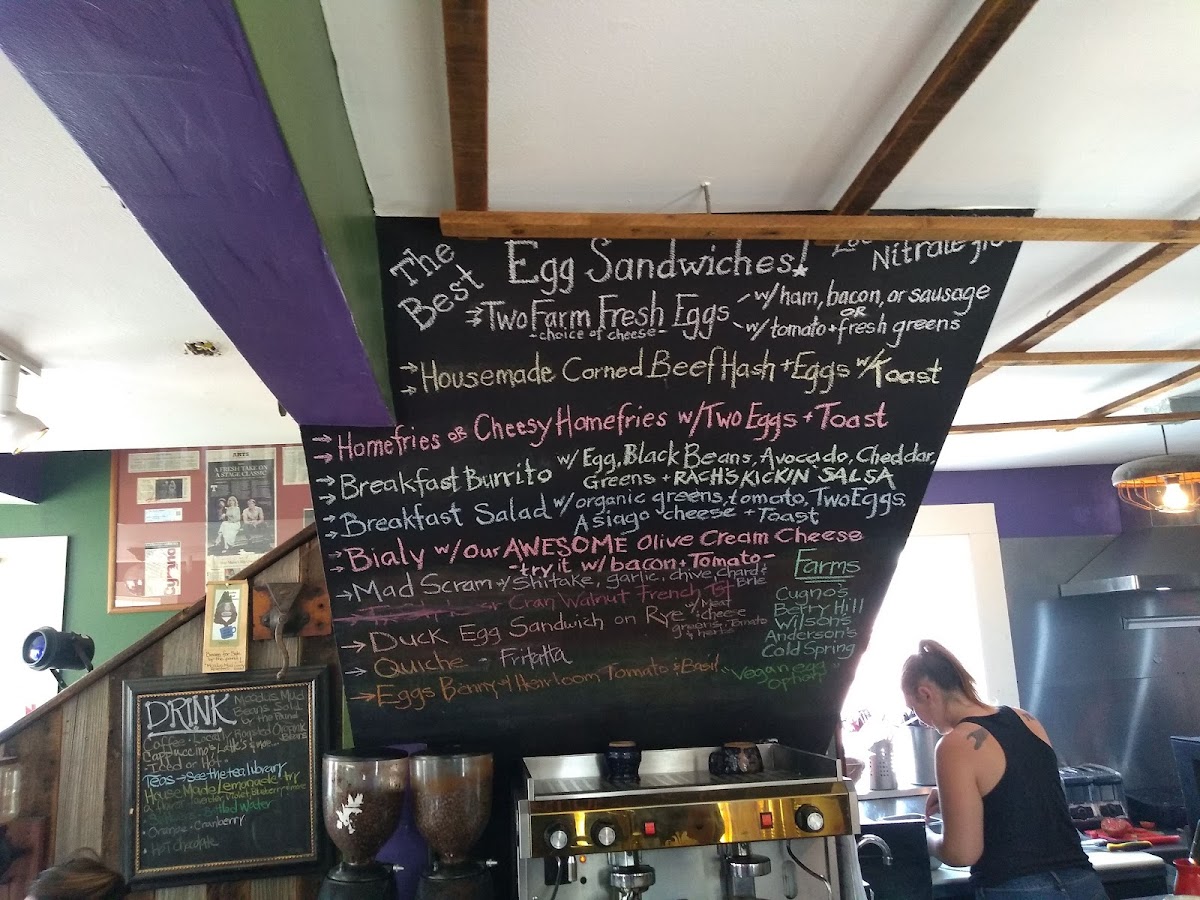 The Best
Egg Sandwiches!
Nitrate
→ Two Farm Fresh Eggs
-choice of cheese-
w/ham, bacon, or sausage
OR
w/tomato + fresh greens
→ Housemade Corned Beef Hash + Eggs w/Toast
→ Homefries OR Cheesy Homefries w/Two Eggs + Toast
→ Breakfast Burrito w/ Egg, Black Beans, Avocado, Cheddar,
Greens + RACH'S KICKIN' SALSA
→ Breakfast Salad w/organic greens, tomato, Two Eggs,
Asiago cheese + Toast
→ Bialy w/ Our AWESOME Olive Cream Cheese
-try it w/ bacon + Tomato-
→ Mad Scram w/ Shitake, garlic, chive, chard +
Brie
Cran Walnut French Tst
→ Duck Egg Sandwich on Rye w/ Meat
+ cheese
greens + Tomato
+ herbs
→ Quiche - Fritatta
→ Eggs Benny w/ Heirloom Tomato + Basil
"Vegan egg"
option
Farms
Cugno's
Berry Hill
Wilson's
Anderson's
Cold Spring
ARTS
A FRESH TAKE ON
A STAGE CLASSIC
cyrano
DRINK
Moodus Mud
Beans Sold
by the Pound
Coffee - Locally Roasted Organic
Beans
Cappuccino's Latte's + more...
Iced or Hot
Teas → See the tea library
House Made Lemonade, try
Water
• Orange • Cranberry
• Hot Chocolate